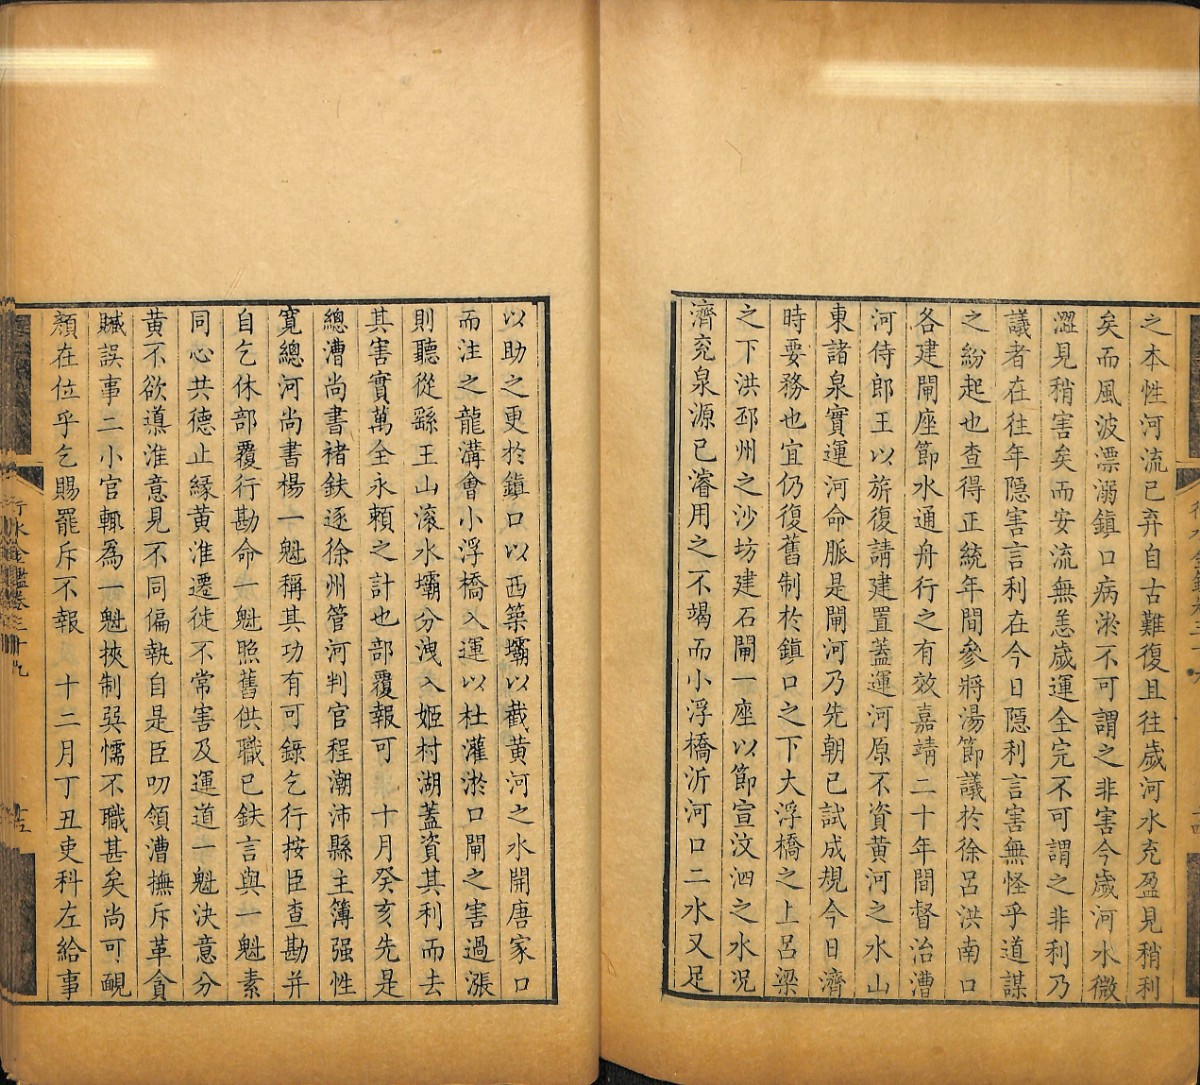 之本性河流已弃自古難復且往歲河水充盈見稍利
矣而風波漂溺鎮口病淤不可謂之非害今歲河水微
澀見稍害矣而安流無恙歲運全完不可謂之非利乃
議者在往年隱害言利在今日隱利言害無怪乎道謀
之紛起也查得正統年間參將湯節議於徐呂洪南口
各建閘座節水通舟行之有效嘉靖二十年間督治漕
河侍郎王以旂復請建置蓋運河原不資黄河之水山
東諸泉實運河命脈是閘河乃先朝已試成規今日濟
時要務也宜仍復舊制於鎮口之下大浮橋之上呂梁
之下洪邳州之沙坊建石閘一座以節宣汶泗之水况
濟兖泉源已濬用之不竭而小浮橋沂河口二水又足
以助之更於鎮口以西築壩以截黄河之水開唐家口
而注之龍溝會小浮橋入運以杜灌淤口閘之害過漲
則聽從繇王山滚水壩分洩入姬村湖蓋資其利而去
其害實萬全永賴之計也部覆報可 十月癸亥先是
總漕尚書禇鈇逐徐州管河判官程潮沛縣主簿强性
寛總河尚書楊一魁稱其功有可錄乞行按臣查勘并
自乞休部覆行勘命一魁照舊供職已鈇言與一魁素
同心共德止縁黄淮遷徙不常害及運道一魁決意分
黄不欲導淮意見不同偏執自是臣叨領漕撫斥革貪
贓誤事二小官輒為一魁挾制㢲懦不職甚矣尚可靦
顔在位乎乞賜罷斥不報 十二月丁丑吏科左給事
行水金鑑卷三十九